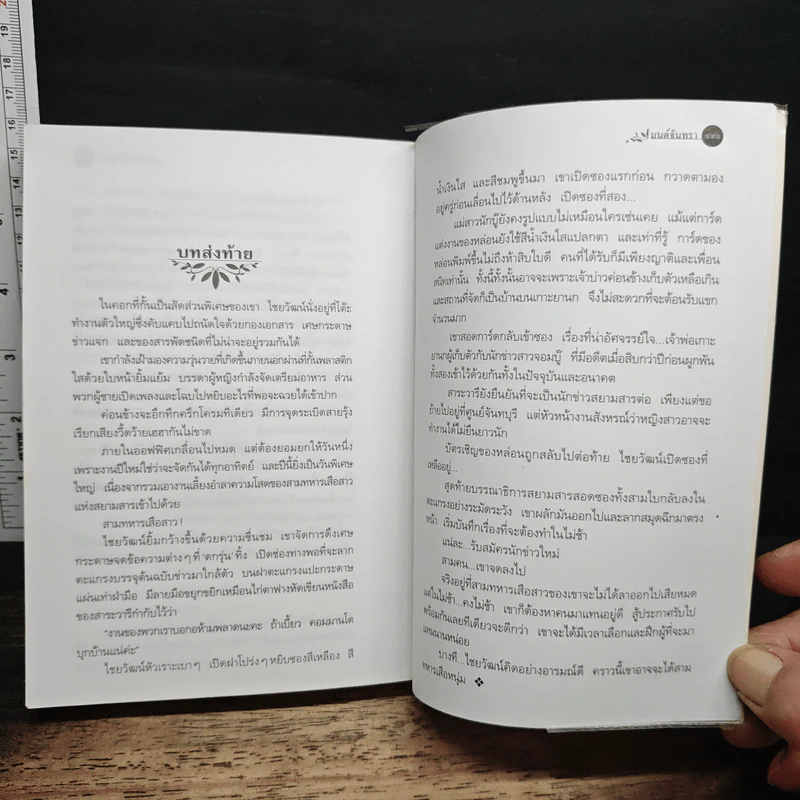 บทส่งท้าย
ในคอกที่กั้นเป็นสัดส่วนพิเศษของเขา ไชยวัฒน์นั่งอยู่ที่โต๊ะ
ทำงานตัวใหญ่ซึ่งคับแคบไปถนัดใจด้วยกองเอกสาร เศษกระดาษ
ข่าวแจก และของสารพัดชนิดที่ไม่น่าจะอยู่รวมกันได้
เขากำลังเฝ้ามองความวุ่นวายที่เกิดขึ้นภายนอกผ่านที่กั้นพลาสติก
ใสด้วยใบหน้ายิ้มแย้ม บรรดาผู้หญิงกำลังจัดเตรียมอาหาร ส่วน
พวกผู้ชายเปิดเพลงและโฉบไปหยิบอะไรที่พอจะฉวยได้เข้าปาก
ค่อนข้างจะอึกทึกครึกโครมทีเดียว มีการจุดระเบิดสายรุ้ง
เรียกเสียงวี้ดว้ายเฮฮากันไม่ขาด
ภายในออฟฟิศเกลื่อนไปหมด แต่ต้องยอมยกให้วันหนึ่ง
เพราะงานปีใหม่ใช่ว่าจะจัดกันได้ทุกอาทิตย์ และปีนี้ยิ่งเป็นวันพิเศษ
ใหญ่ เนื่องจากรวมเอางานเลี้ยงอำลาความโสดของสามทหารเสือสาว
แห่งสยามสารเข้าไปด้วย
สามทหารเสือสาว !
ไชยวัฒน์ยิ้มกว้างขึ้นด้วยความชื่นชม เขาจัดการดึงเศษ
กระดาษจดข้อความต่างๆ ที่ 'ตกรุ่น' ทิ้ง เปิดช่องทางพอที่จะลาก
ตะแกรงบรรจุต้นฉบับข่าวมาใกล้ตัว บนฝาตะแกรงแปะกระดาษ
แผ่นเท่าฝ่ามือ มีลายมือขยุกขยิกเหมือนไก่ตาฟางหัดเขียนหนังสือ
ของสาระวารีกำกับไว้ว่า
"งานของพวกเราบอกอห้ามพลาดนะคะ ถ้าเบี้ยว คอมมานโด
บุกบ้านแน่ค่ะ"
ไชยวัฒน์หัวเราะเบาๆ เปิดฝาโปร่งๆ หยิบซองสีเหลือง สี
มนต์จันทรา ๔๙๖
น้ำเงินใส และสีชมพูขึ้นมา เขาเปิดซองแรกก่อน กวาดตามอง
อยู่ครู่ก่อนเลื่อนไปไว้ด้านหลัง เปิดซองที่สอง...
แม่สาวนักบู๊ยังคงรูปแบบไม่เหมือนใครเช่นเคย แม้แต่การ์ด
แต่งงานของหล่อนยังใช้สีน้ำเงินใสแปลกตา และเท่าที่รู้ การ์ดของ
หล่อนพิมพ์ขึ้นไม่ถึงห้าสิบใบดี คนที่ได้รับก็มีเพียงญาติและเพื่อน
สนิทเท่านั้น ทั้งนี้ทั้งนั้นอาจจะเพราะเจ้าบ่าวค่อนข้างเก็บตัวเหลือเกิน
และสถานที่จัดก็เป็นบ้านบนเกาะยานก จึงไม่สะดวกที่จะต้อนรับแขก
จำนวนมาก
เขาสอดการ์ดกลับเข้าซอง เรื่องที่น่าอัศจรรย์ใจ...เจ้าพ่อเกาะ
ยานกผู้เก็บตัวกับนักข่าวสาวจอมบู๊ ที่มีอดีตเมื่อสิบกว่าปีก่อนผูกพัน
ทั้งสองเข้าไว้ด้วยกันทั้งในปัจจุบันและอนาคต
สาระวารียังยืนยันที่จะเป็นนักข่าวสยามสารต่อ เพียงแต่ขอ
ย้ายไปอยู่ที่ศูนย์จันทบุรี แต่หัวหน้างานสังหรณ์ว่าหญิงสาวอาจจะ
ทำงานได้ไม่ยืนยาวนัก
บัตรเชิญของหล่อนถูกสลับไปต่อท้าย ไชยวัฒน์เปิดซองที่
เหลืออยู่...
สุดท้ายบรรณาธิการสยามสารสอดซองทั้งสามใบกลับลงใน
ตะแกรงอย่างระมัดระวัง เขาผลักมันออกไปและลากสมุดฉีกมาตรง
หน้า เริ่มบันทึกเรื่องที่จะต้องทำในไม่ช้า
แน่ละ...รับสมัครนักข่าวใหม่
สามคน...เขาจดลงไป
จริงอยู่ที่สามทหารเสือสาวของเขาจะไม่ได้ลาออกไปเสียหมด
แต่ในไม่ช้า...คงไม่ช้า เขาก็ต้องหาคนมาแทนอยู่ดี สู้ประกาศรับไป
พร้อมกันเลยทีเดียวจะดีกว่า เขาจะได้มีเวลาเลือกและฝึกผู้ที่จะมา
แทนนานหน่อย
บางที...ไชยวัฒน์คิดอย่างอารมณ์ดี คราวนี้เขาอาจจะได้สาม
ทหารเสือหนุ่ม